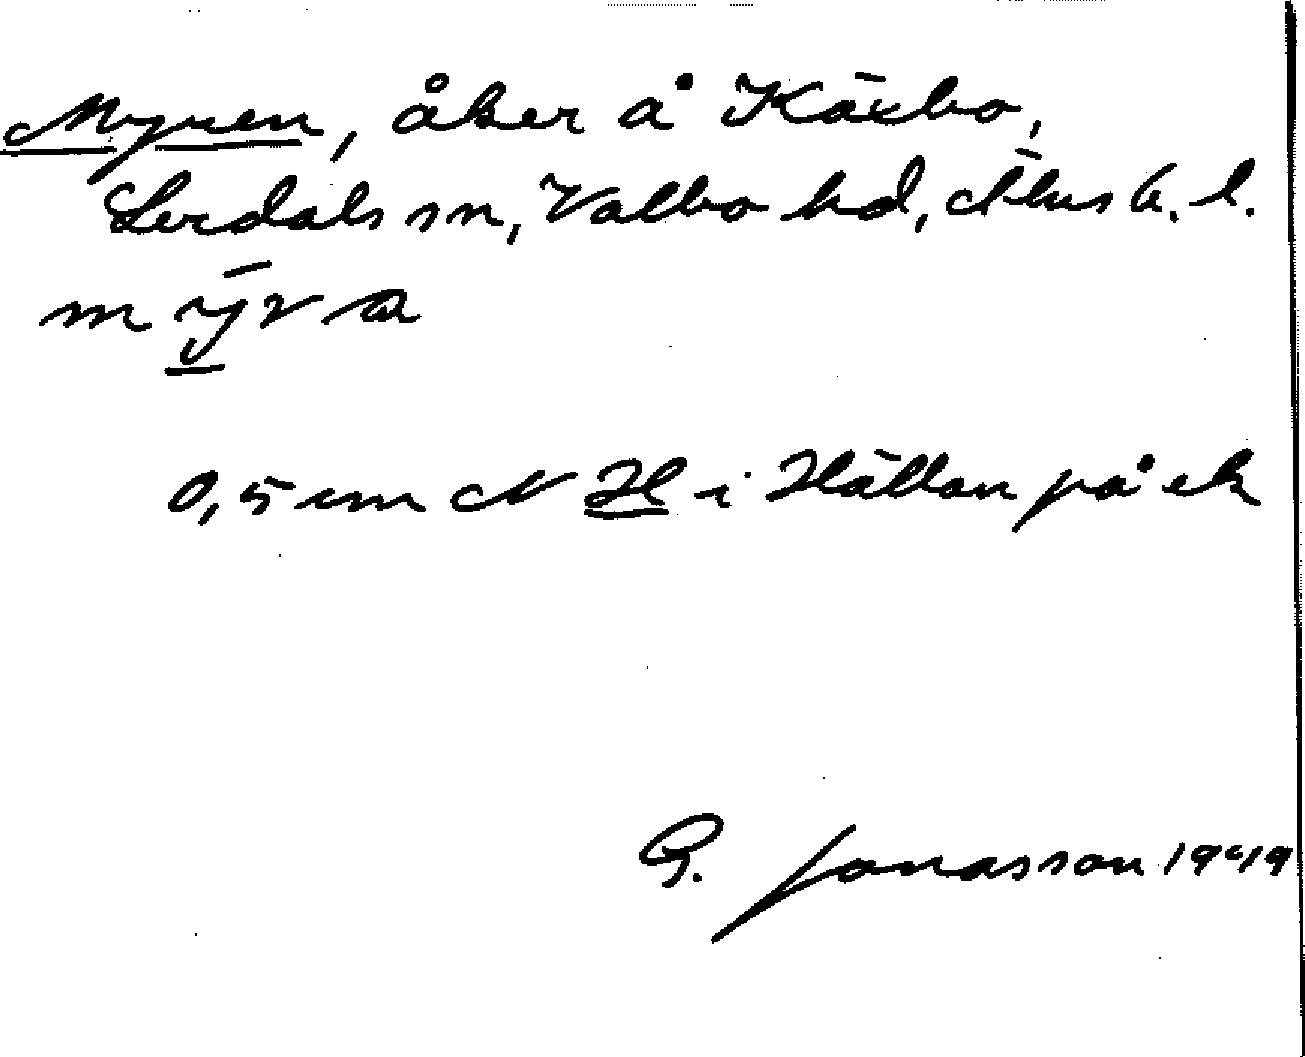 Myren, åker å Käxbo,
Lerdals sn, Valbo hd, Älvsb. l.
mȳva
0,5 cm N H i Hällan på ek
G. Jonasson 1949